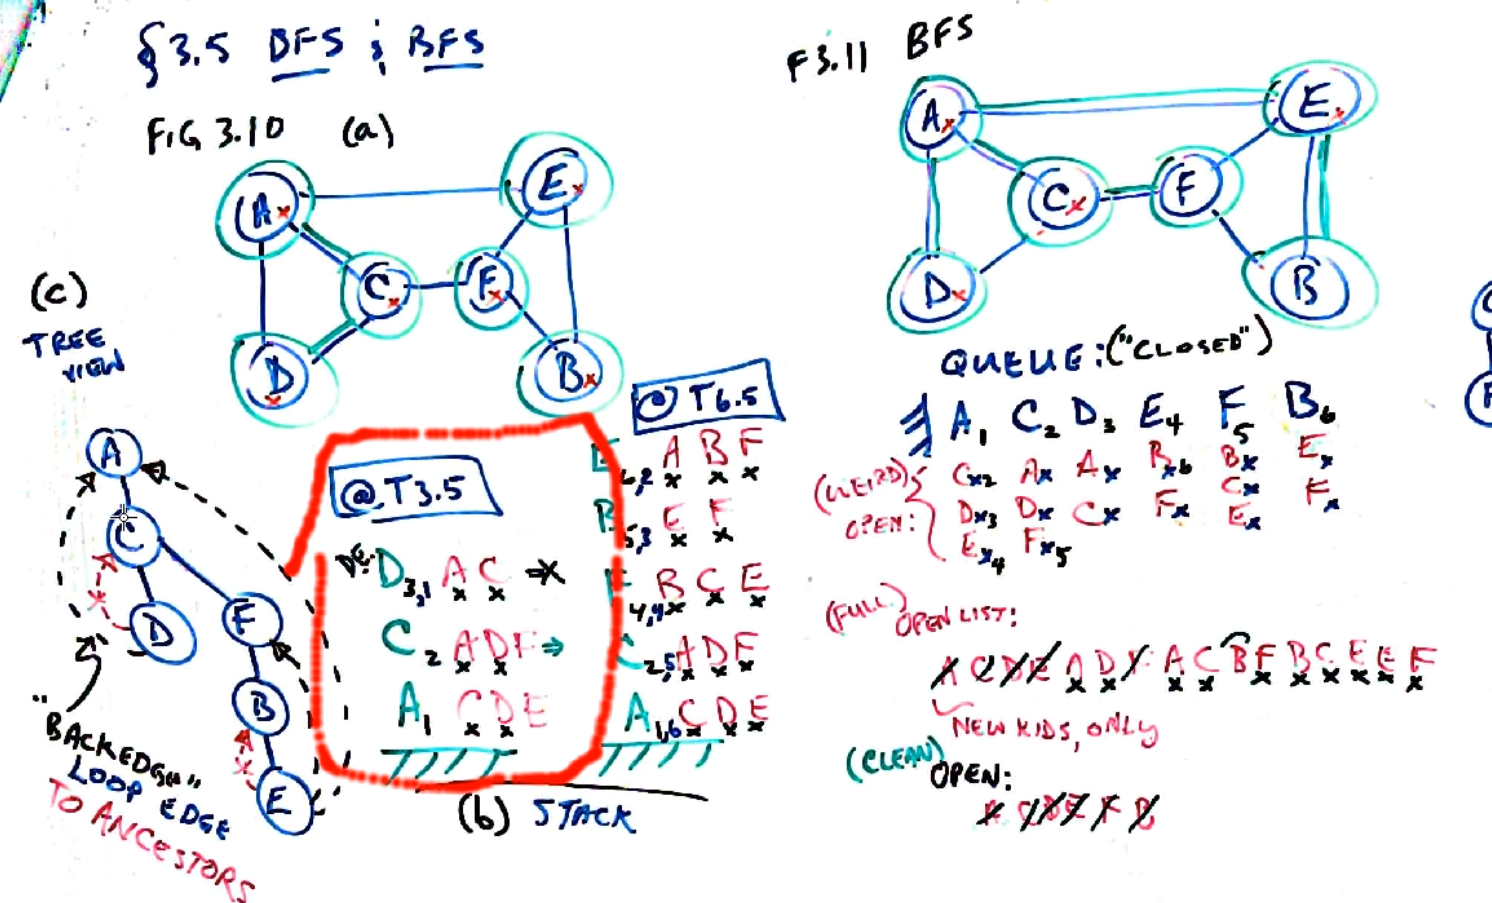 § 3.5 DFS & BFS
FIG 3.10 (a)
A
E
C
F
D
B
(c)
TREE
VIEW
A
C
D
F
B
E
"BACKEDGE"
LOOP EDGE
TO ANCESTORS
@ T3.5
DE: D3,1 A C
C2 A D F ⇒
A1 C D E
@ T6.5
E6,2 A B F
B5,3 E F
F4,4 B C E
C2,5 A D F
A1,6 C D E
(b) STACK
F3.11 BFS
A
E
C
F
D
B
QUEUE: ("CLOSED")
A1 C2 D3 E4 F5 B6
(WEIRD)
OPEN:
Cx2 Ax Ax Bx6 Bx Ex
Dx3 Dx Cx Fx Cx Fx
Ex4 Fx5 Ex
(FULL)
OPEN LIST:
A C D E A D F A C B F B C E E F
NEW KIDS, ONLY
(CLEAN)
OPEN:
A C D E F B